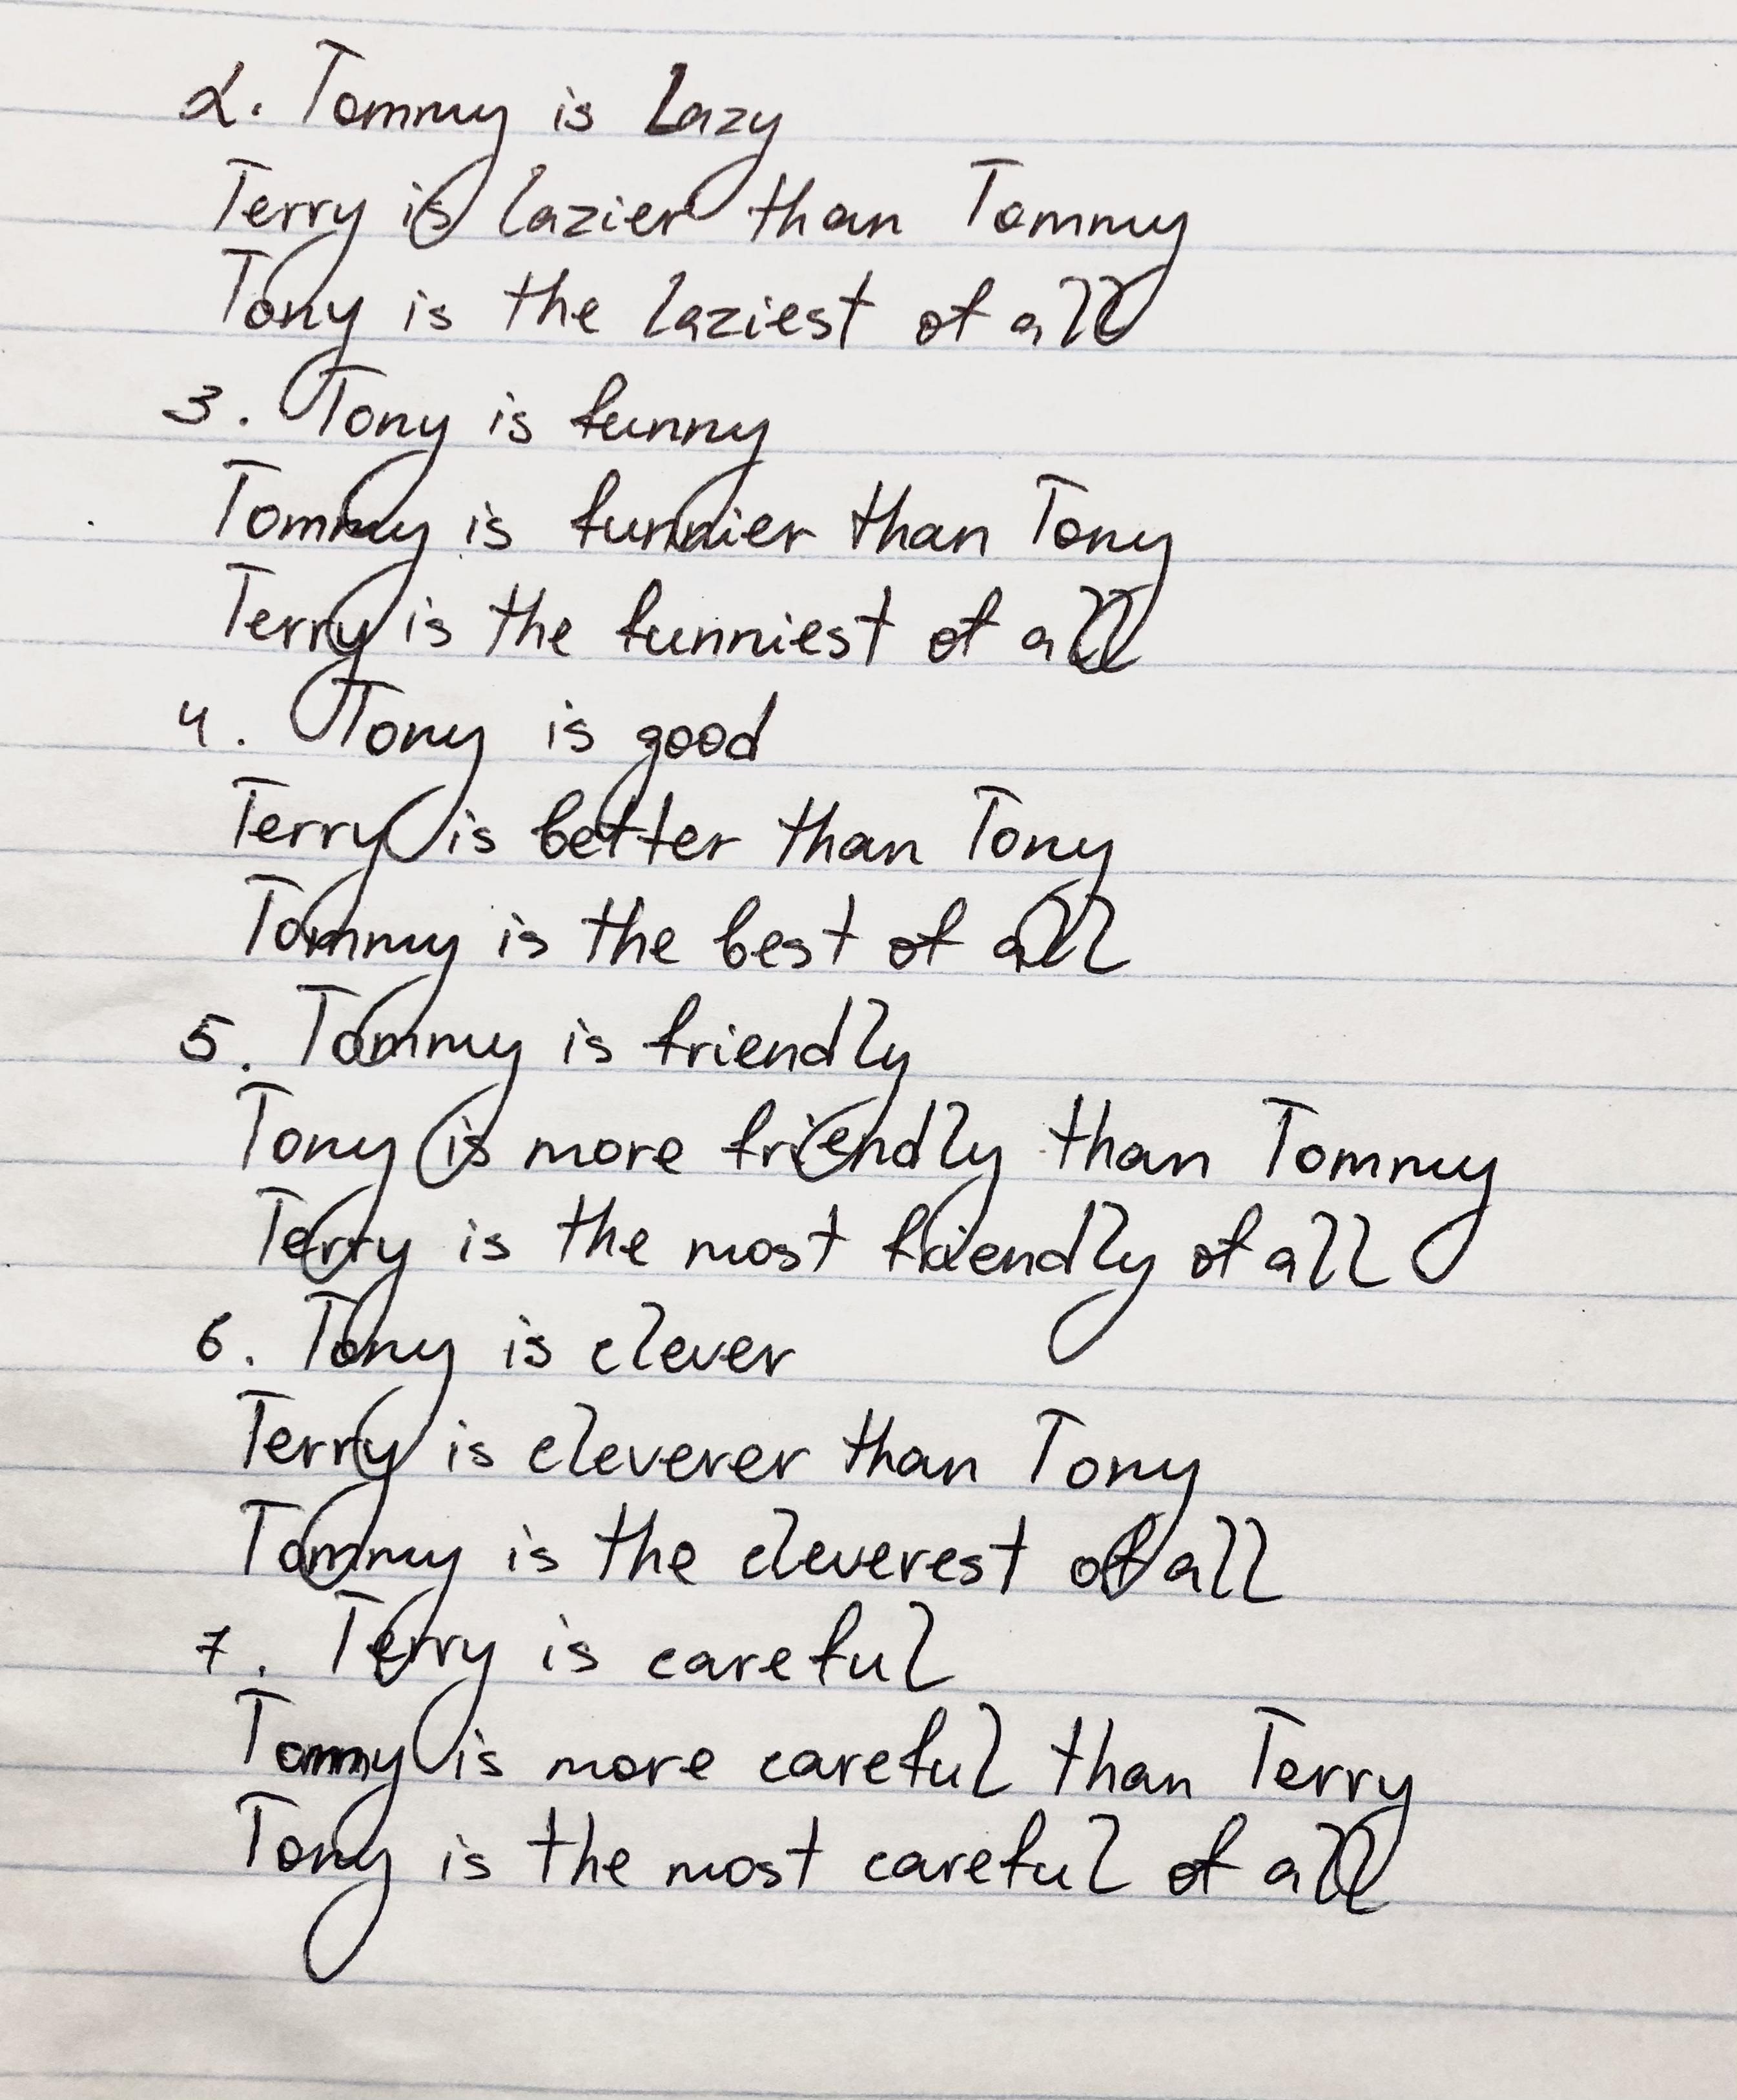 2. Tommy is Lazy
Terry is lazier than Tommy
Tony is the laziest of all
3. Tony is funny
Tommy is funnier than Tony
Terry is the funniest of all
4. Tony is good
Terry is better than Tony
Tommy is the best of all
5. Tommy is friendly
Tony is more friendly than Tommy
Terry is the most friendly of all
6. Tony is clever
Terry is cleverer than Tony
Tommy is the cleverest of all
7. Terry is careful
Tommy is more careful than Terry
Tony is the most careful of all